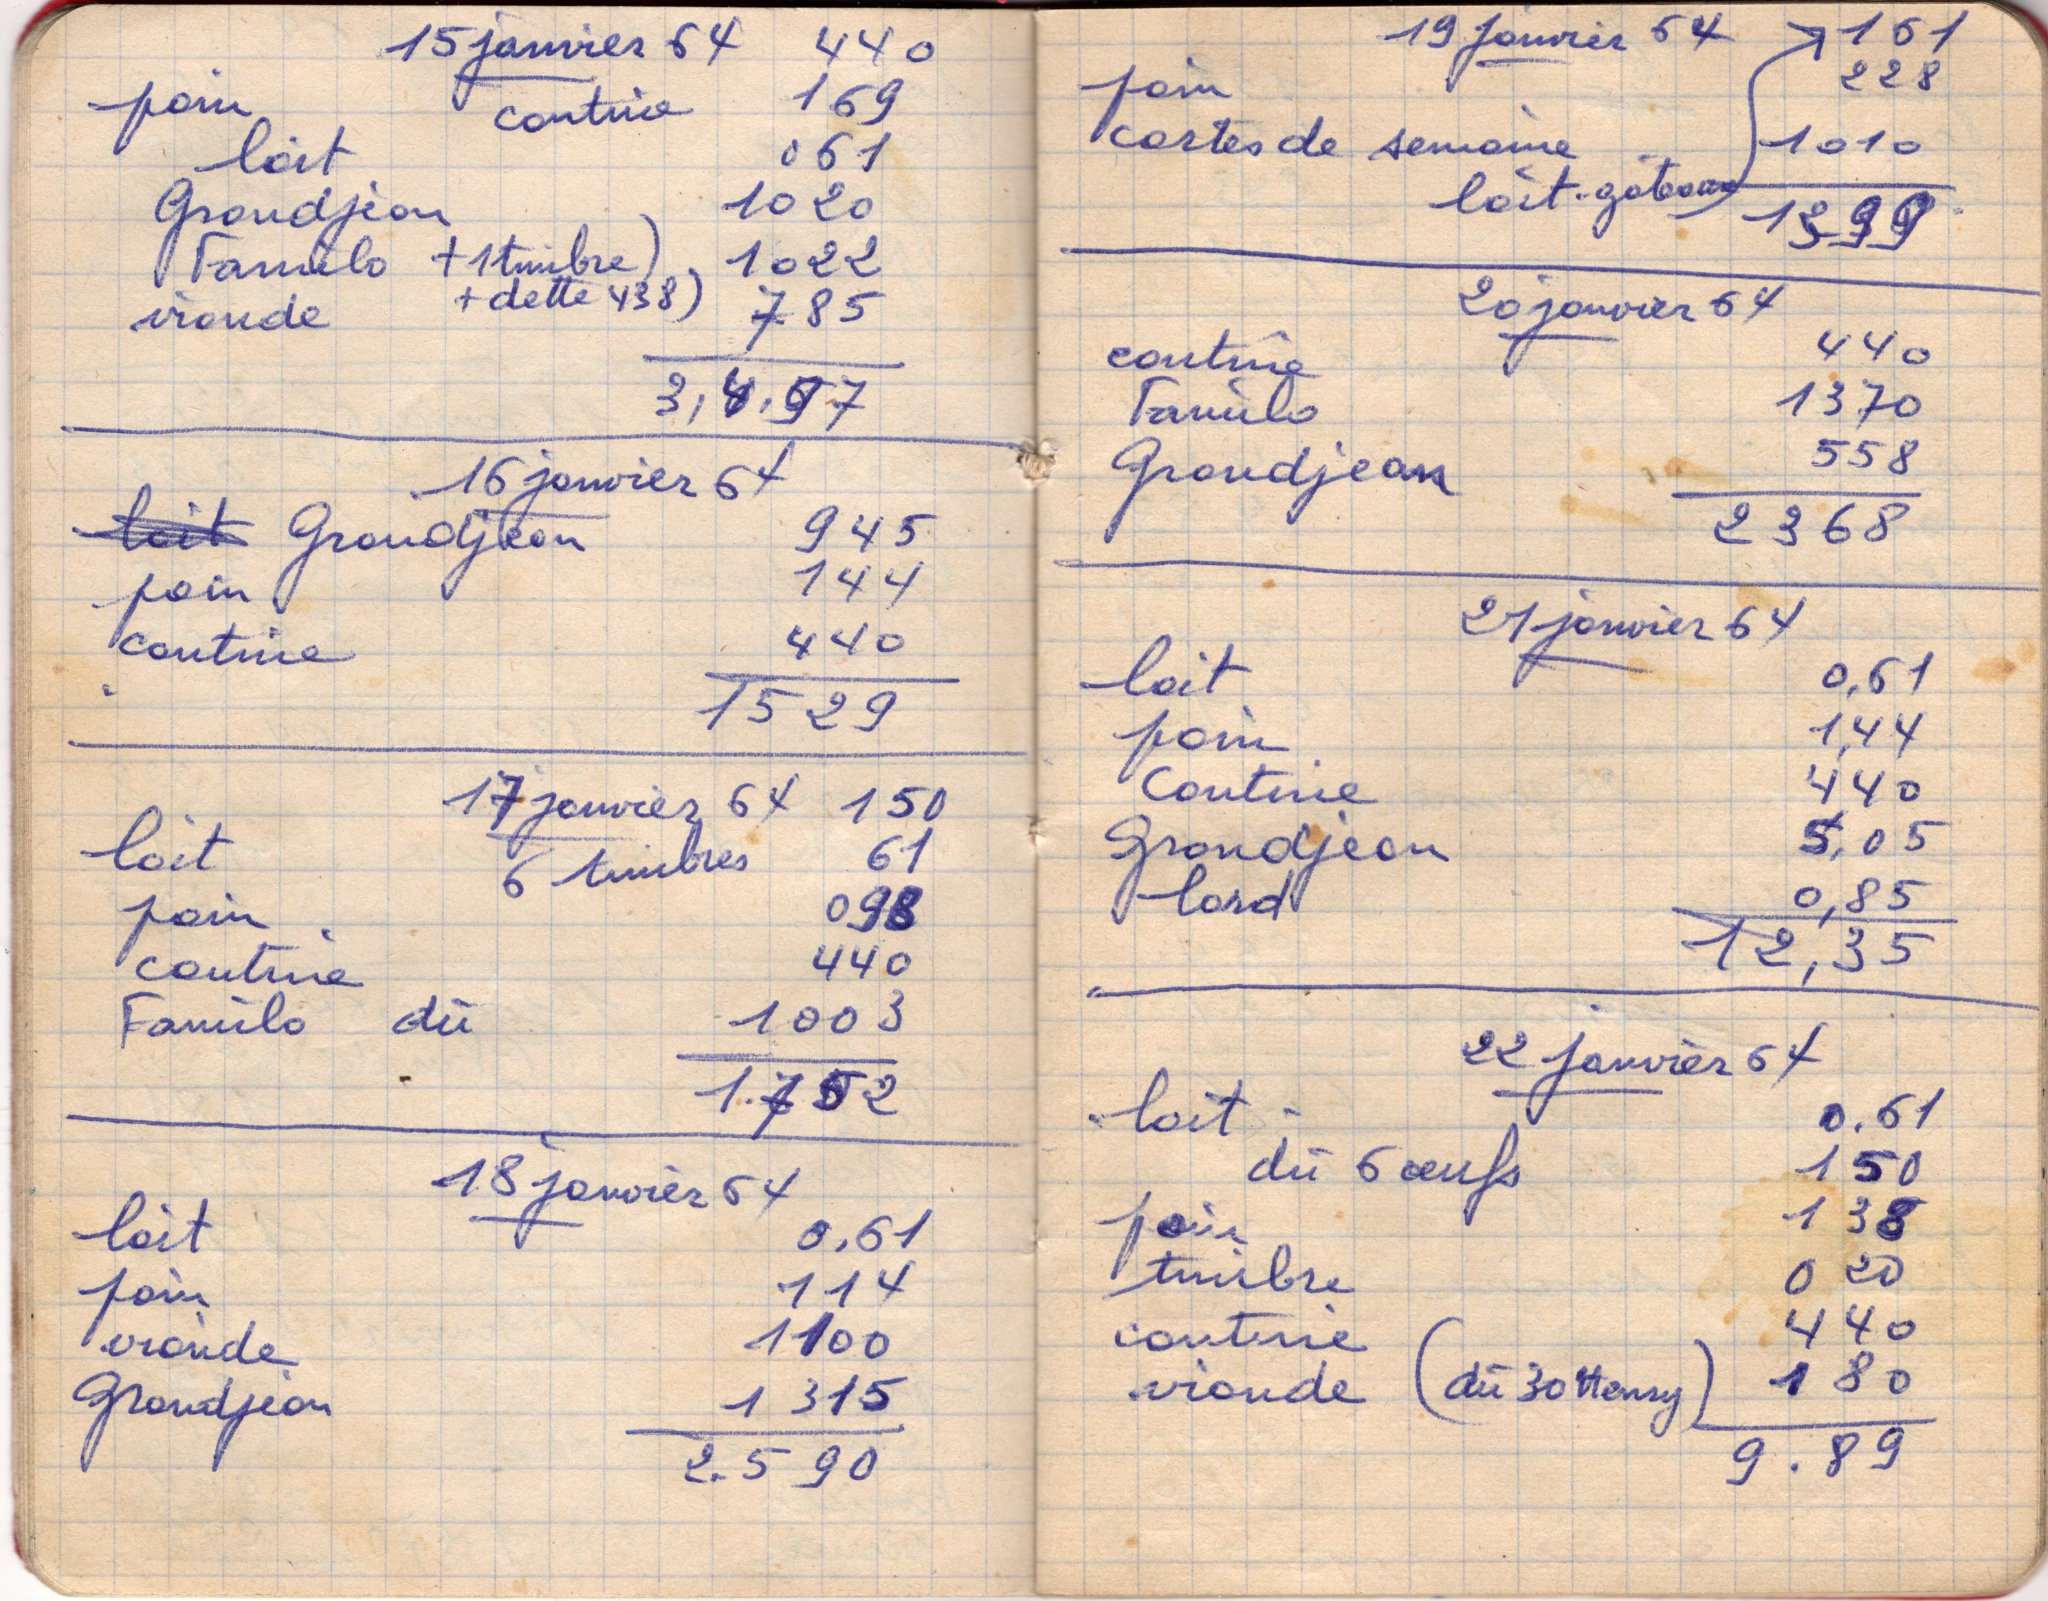 15 janvier 64 440
pain cantine 169
lait 061
Grandjean 1020
Familo +1 timbre) 1022
viande + dette 438) 785
3,4.97
16 janvier 64
lait Grandjean 945
pain 144
cantine 440
1529
17 janvier 64 150
lait 6 timbres 61
pain 098
cantine 440
Familo dû 1003
1.752
18 janvier 64
lait 0,61
pain 114
viande 1100
Grandjean 1315
2.590
19 janvier 64 161
pain 228
cartes de semaine 1010
lait-gateaux 1399
20 janvier 64
cantine 440
Familo 1370
Grandjean 558
2368
21 janvier 64
lait 0,61
pain 1,44
Cantine 440
Grandjean 5,05
lard 0,85
12,35
22 janvier 64
lait 0.61
dû 6 œufs 150
pain 138
timbre 020
cantine 440
viande (dû 30 Henry) 180
9.89